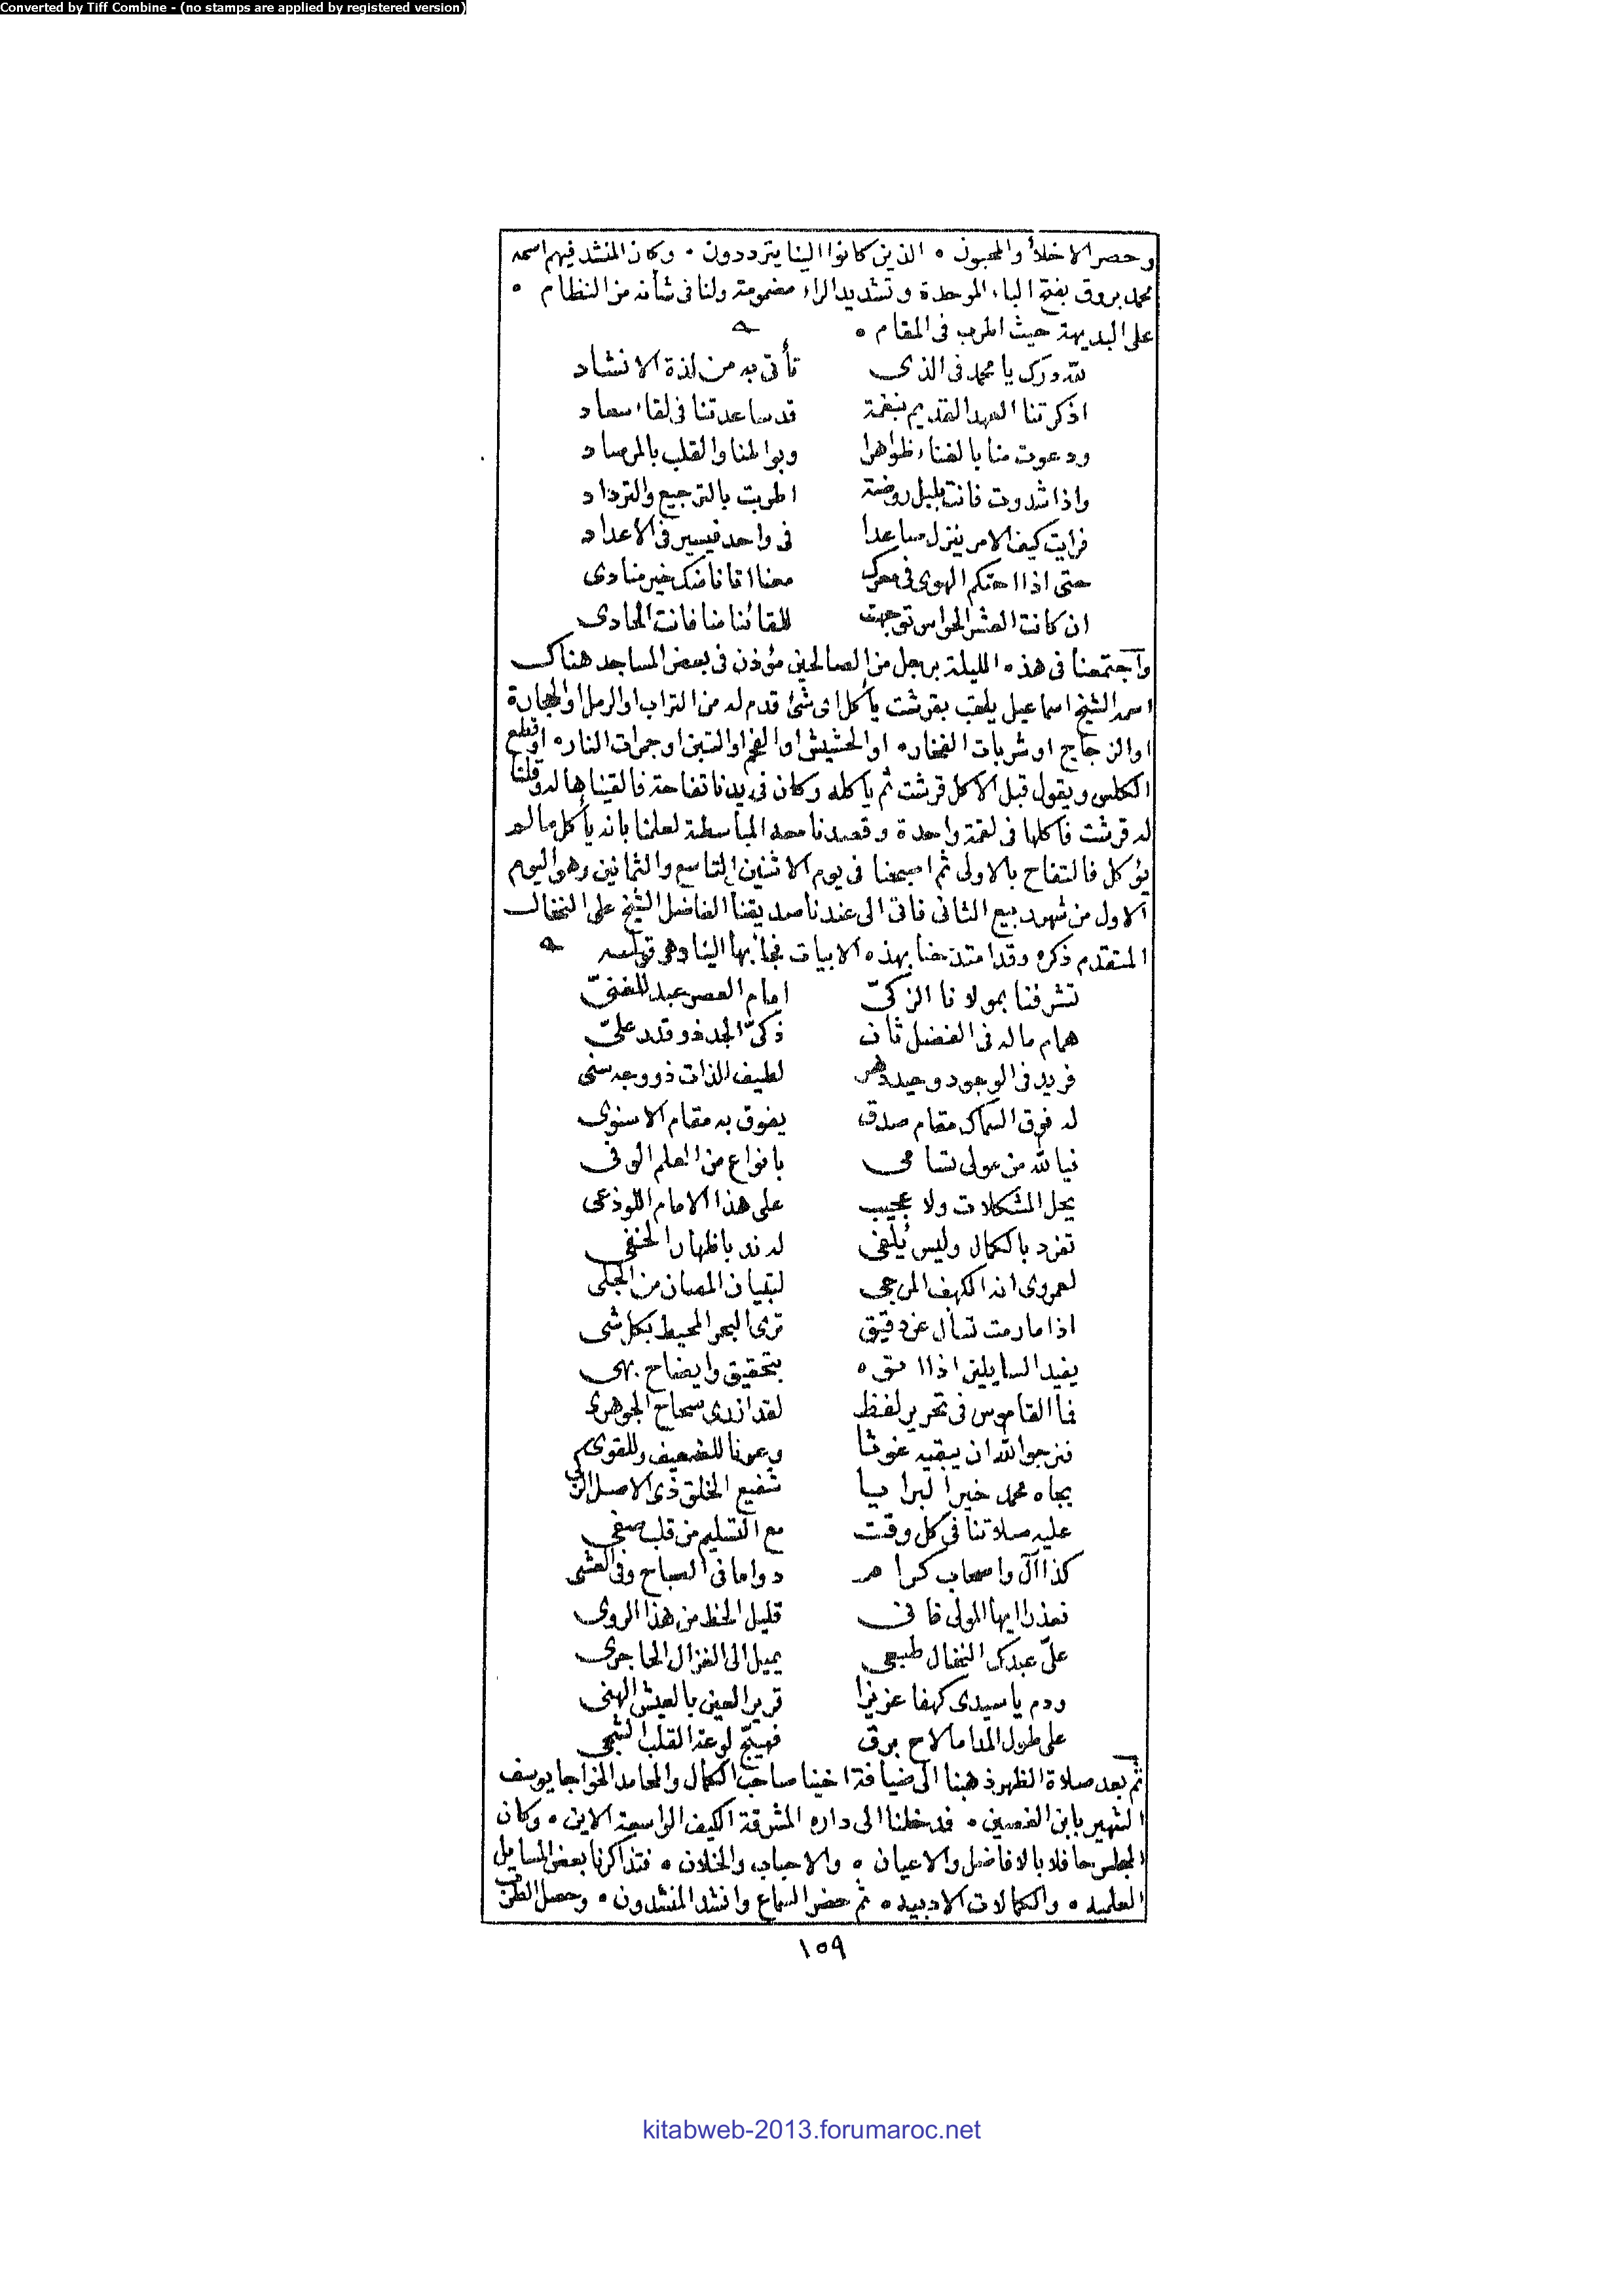 Converted by Tiff Combine - (no stamps are applied by registered version)
وحصر الاخلأ والمحبون ه الذين كانوا الينا يترددون ٠ وكان المنشد فيهم اسمه
محمد بروق بفتح الباء الموحدة وتشديد الراء مضمومة ولنا فى شأنه من النظام ه
على البديهة حيث اطرب فى المقام ه
لله درك يا محمد فى الذى تأتى به من لذة الانشاد
اذكرتنا العهد القديم بنغمة قد ساعدتنا فى لقاء سعاد
ودعوت منا بالغناء ظواهرا وبواطنا والقلب بالمرصاد
واذا شدوت فانت بلبل روضة اطربت بالترجيع والترداد
فرايت كيف الامر ينزل ساعدا فى واحد فيسير فى الاعداد
حتى اذا احتكم الهوى فى معرك معنا اقاناضك خير منادى
ان كانت العشر الحواس توجهت للقائنا منا فانت الحادى
وآجتمعنا فى هذه الليلة برجل من الصالحين مؤذن فى بعض المساجد هناك
اسمه الشيخ اسماعيل يلقب بقرشت يأكل اى شئ قدم له من التراب او الرمل او الحجارة
او الزجاج او شربات الفخاره او الحشيش او الفحم او التبن او جمرات الناره او قطع
الكلس ويقول قبل الاكل قرشت ثم ياكله وكان فى يدنا تفاحة فالقيناها له وقلنا
له قرشت فاكلها فى لقمة واحدة وقصدنا معه المباسطة لعلمنا بانه يأكل ما لم
يؤكل فالتفاح بالاولى ثم اصبحنا فى يوم الاثنين التاسع والثمانين وهو اليوم
الاول من شهر ربيع الثانى فاتى الى عندنا صديقنا الفاضل الشيخ على النخال
المتقدم ذكره وقد امتدحنا بهذه الابيات فجأ بها الينا وهو قوله
تشرفنا بمولانا الزكىّ امام العصر عبد للغنىّ
همام ماله فى الفضل ثان ذكىّ الجد ذو قدر علىّ
فريد فى الوجود وحيد دهر لطيف الذات ذو وجه سنى
له فوق السماك مقام صدق يفوق به مقام الاسنوى
فيا لله من مولى تسامى بانواع من العلم الوفى
يحل المشكلات ولا عجيب على هذا الامام اللوذعى
تفرد بالكمال وليس يُلفى له ند باظهار الخفى
لعمرى انه الكهف المرجى لتبيان المصان من الجلى
اذا ما رمت تسأل عن دقيق ترى البحر المحيط بكل شى
يفيد السايلين اذا اتوه بتحقيق وايضاح بهى
فما القاموس فى تحرير لفظ لقد ازرى صحاح الجوهرى
فنرجو الله ان يبقيه غوثا وعونا للضعيف وللقوى
بجاه محمد خير البرايا شفيع الخلق ذى الاصل الزكى
عليه صلاتنا فى كل وقت مع التسليم من قلب صفى
كذا آل واصحاب كرام دواما فى الصباح وفى العشى
فعذرا ايها المولى فانى قليل الحظ من هذا الروى
علىّ عبدك النخال طبعى يميل الى الغزال الحاجرى
ودم يا سيدى كهفا عزيزا قرير العين بالعيش الهنى
على طول المدا ما لاح برق فهيّج لوعة القلب الشجى
ثم بعد صلاة الظهر ذهبنا الى ضيافة اخينا صاحب الكمال والمحامد الخواجا يوسف
الشهير بابن الغصين ه فدخلنا الى داره المشرقة الكيف الواسعة الاين ه وكان
المجلس حافلا بالافاضل والاعيان ه والاحباب والخلان ه فتذاكرنا بعض المسايل
العلميه ه والكمالات الادبيه ه ثم حضر السماع وانشد المنشدون ه وحصل الطرب
١٥٩
kitabweb-2013.forumaroc.net